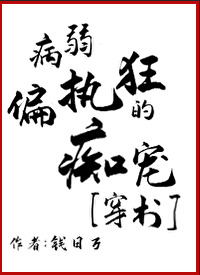 病弱
偏执狂的
痴宠
[穿书]
作者:钱日了